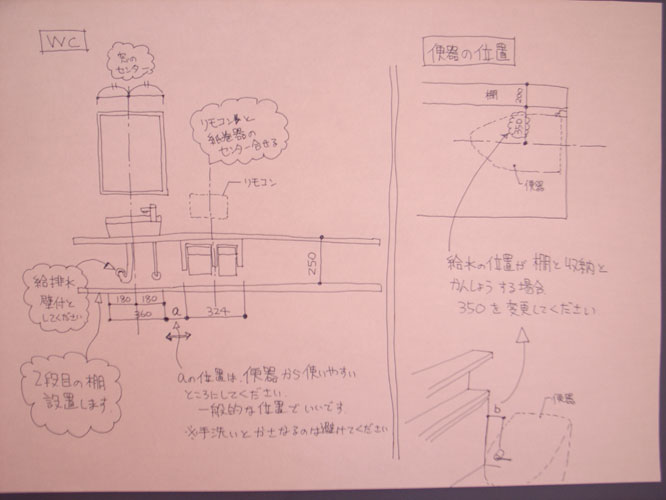 WC
窓の
センター
リモコンと
紙巻器の
センター合せる
リモコン
給排水
壁付と
してください
180
180
360
a
324
250
2段目の棚
設置します
aの位置は、便器から使いやすい
ところにしてください
一般的な位置でいいです
※手洗いとかさなるのは避けてください
便器の位置
棚
200
350
便器
給水の位置が棚と収納と
かんしょうする場合
350を変更してください
b
便器